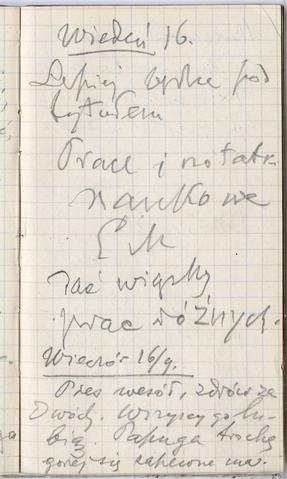 Wiedeń 16.
Lepiej będzie pod
tytułem
Prace i notatk.
naukowe
dać wiązkę
prac różnych.
Wieczór 16/9.
Pies wesół, zdrów za
Dwóch. Wszyscy go lu-
bią. Papuga trochę
gorzej się